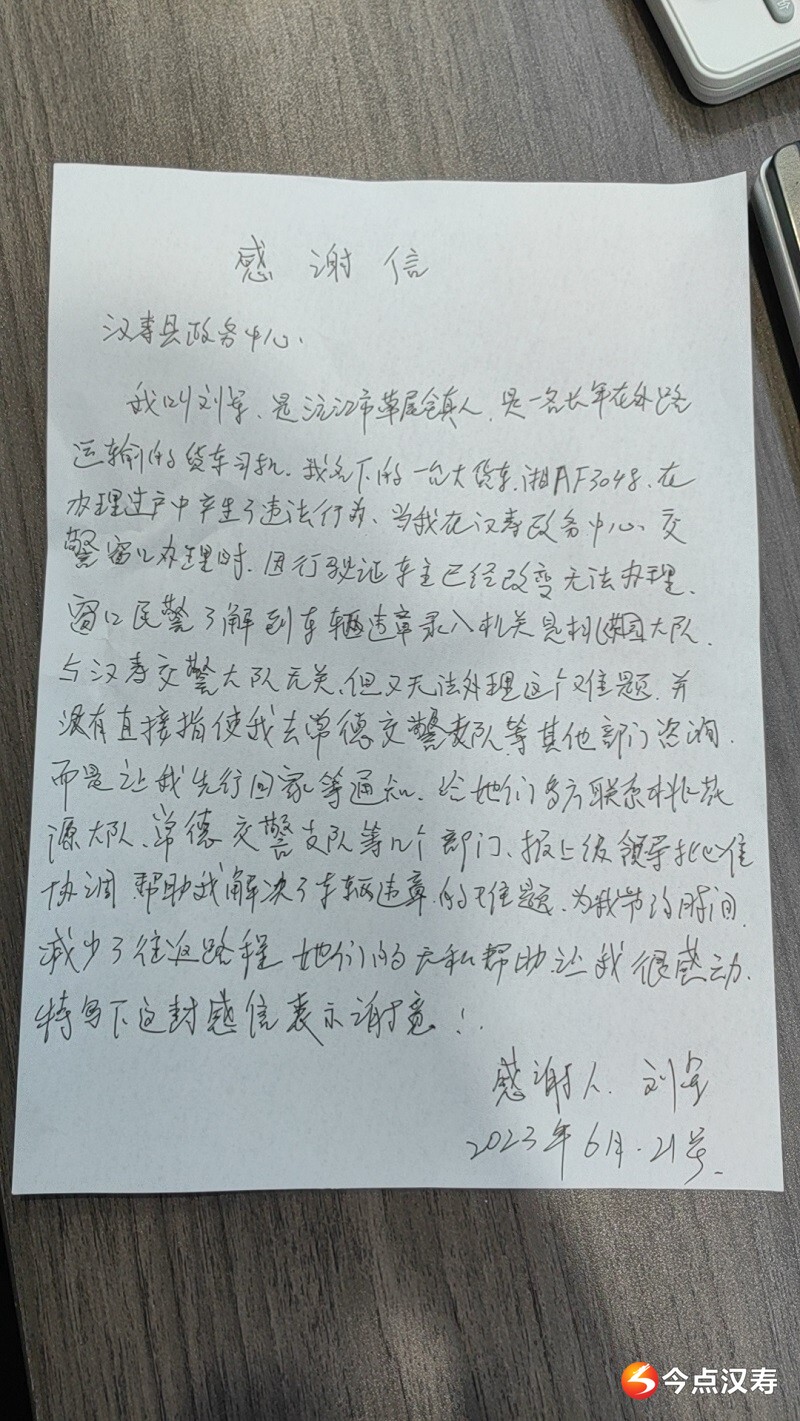 感谢信
汉寿县政务中心、
我叫刘军、是沅江市草尾镇人、是一名长年在外跑
运输的货车司机、我名下的一台大货车、湘AF3048、在
办理过户中产生了违法行为、当我在汉寿政务中心、交
警窗口办理时、因行驶证车主已经改变无法办理、
窗口民警了解到车辆违章录入机关是桃花源大队、
与汉寿交警大队无关、但又无法处理这个难题、并
没有直接指使我去常德交警支队等其他部门咨询、
而是让我先行回家等通知、给她们多方联系桃花
源大队、常德交警支队等几个部门、报上级领导批准
协调、帮助我解决了车辆违章的难题、为我节约时间、
减少了往返路程、她们的无私帮助、让我很感动、
特写下这封感信表示谢意!
感谢人、刘军
2023年6月.21号、
今点汉寿